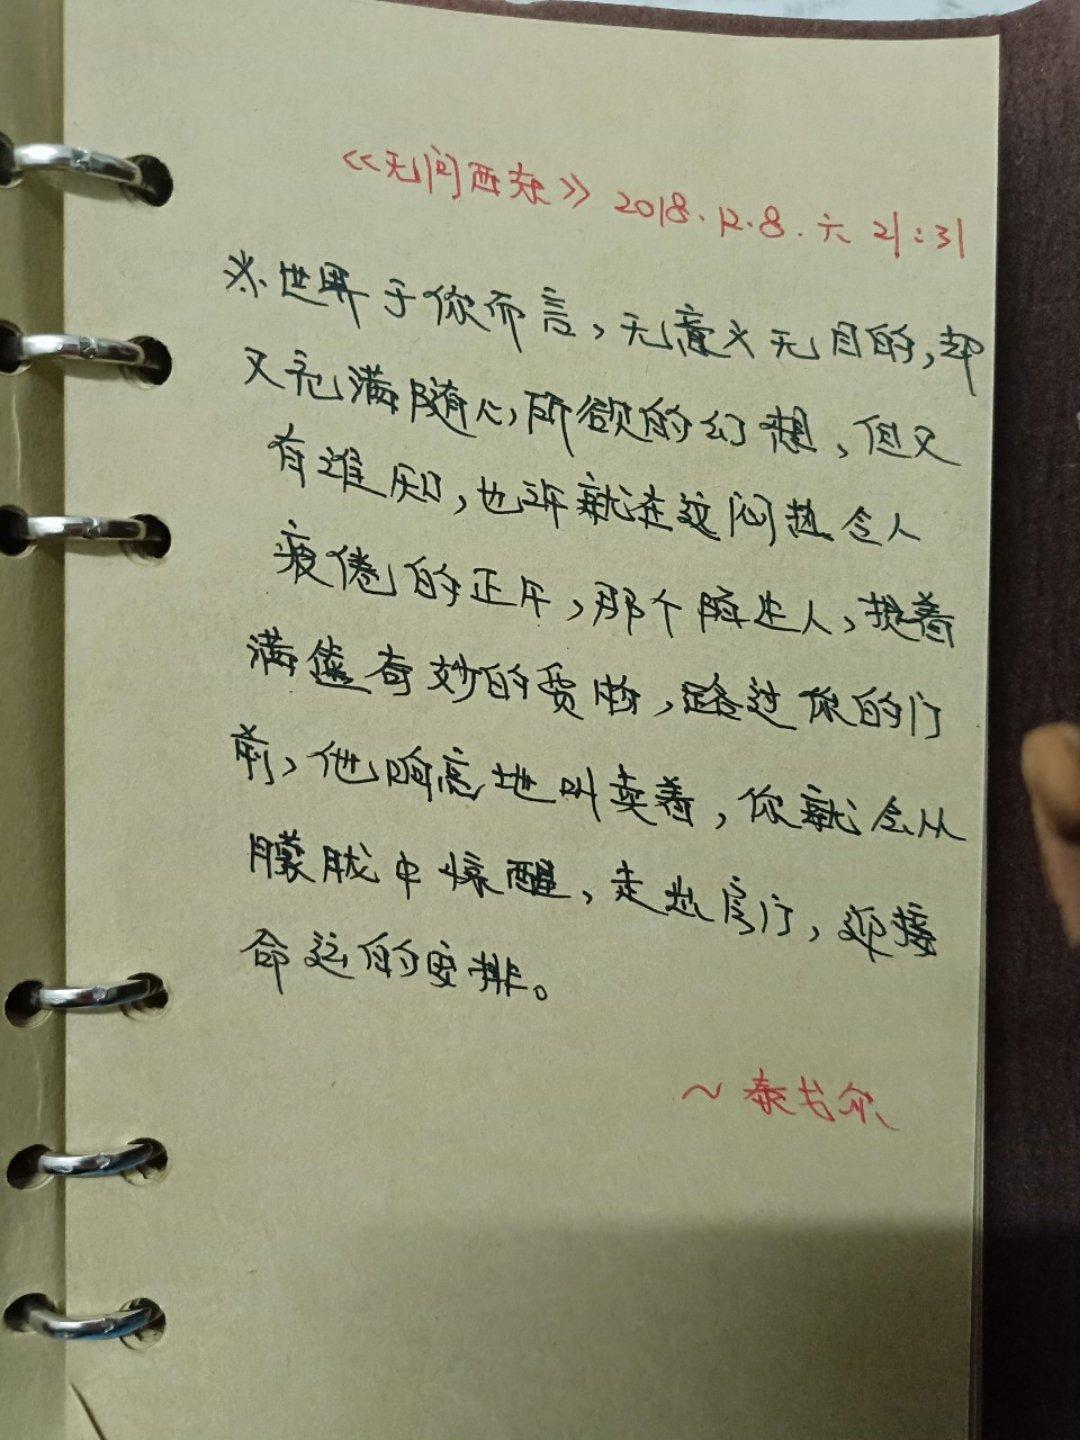 《无问西东》2018.12.8.六 21:31
※世界于你而言,无意义无目的,却
又充满随心所欲的幻想,但又
有谁知,也许就在这闷热令人
疲倦的正午,那个陌生人,提着
满篮奇妙的货物,路过你的门
前,他响亮地叫卖着,你就会从
朦胧中惊醒,走出房门,迎接
命运的安排。
~泰戈尔